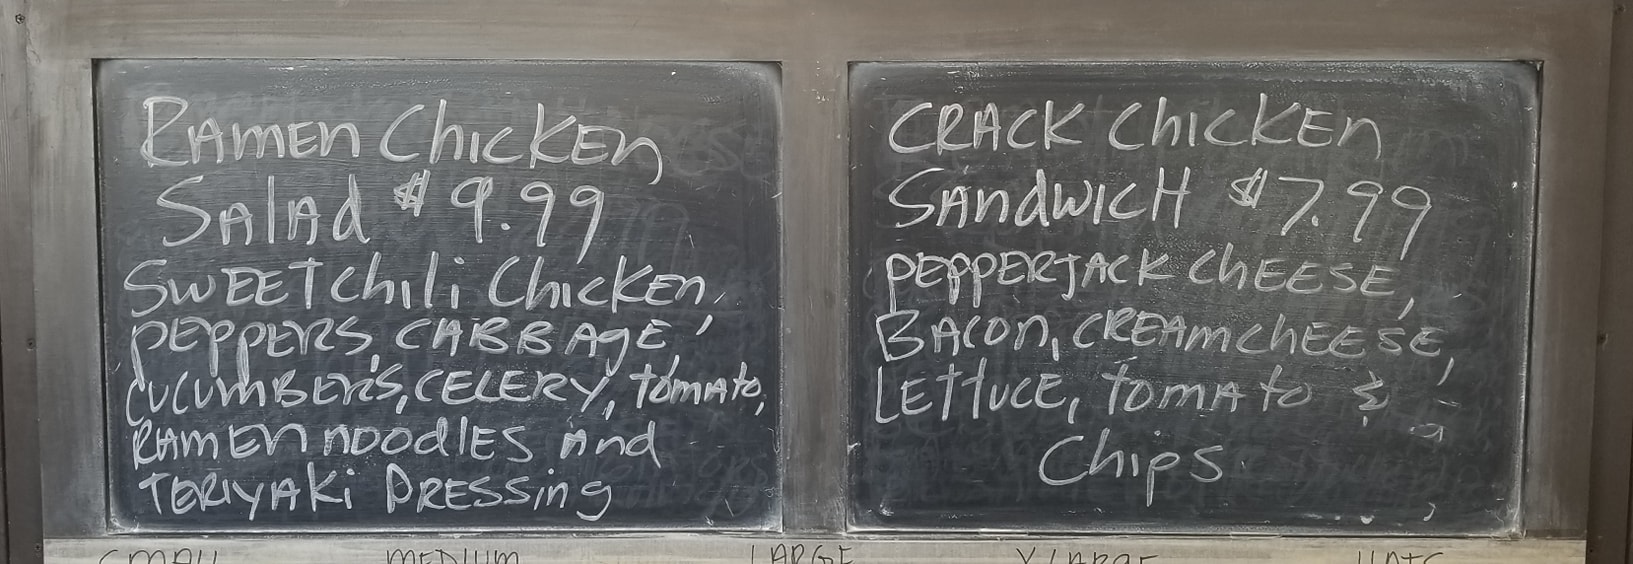 RAMEN CHICKEN
SALAD $9.99
SWEET CHILI CHICKEN,
PEPPERS, CABBAGE,
CUCUMBERS, CELERY, TOMATO,
RAMEN NOODLES AND
TERIYAKI DRESSING
CRACK CHICKEN
SANDWICH $7.99
PEPPERJACK CHEESE,
BACON, CREAM CHEESE,
LETTUCE, TOMATO &
CHIPS
SMALL MEDIUM LARGE X LARGE